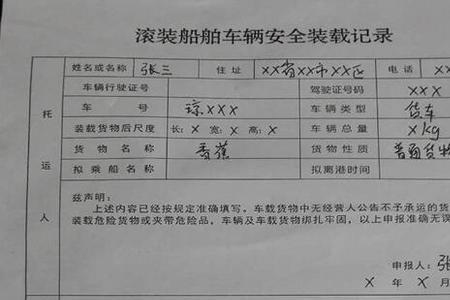 滚装船舶车辆安全装载记录
姓名或名称 张三 住址 XX省XX市XX区 电话 XX
车辆行驶证号 驾驶证号码 XXX
车号 琼XXX 车辆类型 货车
装载货物后尺度 长：X 宽：X 高：X 车辆总量 Xkg
货物名称 香蕉 货物性质 普通货物
拟乘船名称 拟离港时间
托运人
兹声明：
上述内容已经按规定准确填写。车载货物中无经营人公告不予承运的货
装载危险货物或夹带危险品，车辆及车载货物绑扎牢固，以上申报准确无误
申报人：张
X 年 X 月